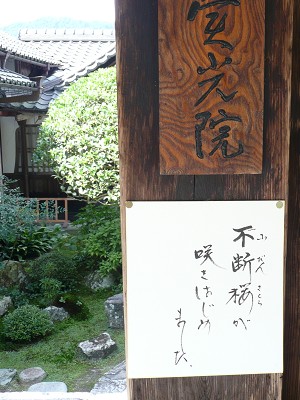 実光院
不断桜が
ふだんさくら
咲きはじめ
ました。